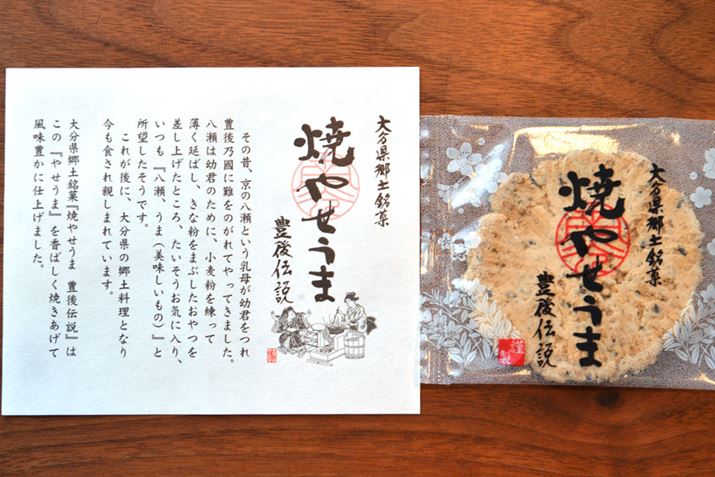 大分県郷土銘菓
焼やせうま
豊後伝説
その昔、京の八瀬という乳母が幼君をつれ
豊後乃國に難をのがれてやってきました。
八瀬は幼君のために、小麦粉を練って
薄く延ばし、きな粉をまぶしたおやつを
差し上げたところ、たいそうお気に入り、
いつも『八瀬、うま（美味しいもの）』と
所望したそうです。
これが後に、大分県の郷土料理となり
今も食され親しまれています。
大分県郷土銘菓『焼やせうま 豊後伝説』は
この『やせうま』を香ばしく焼きあげて
風味豊かに仕上げました。
大分県郷土銘菓
焼やせうま
豊後伝説
謹製